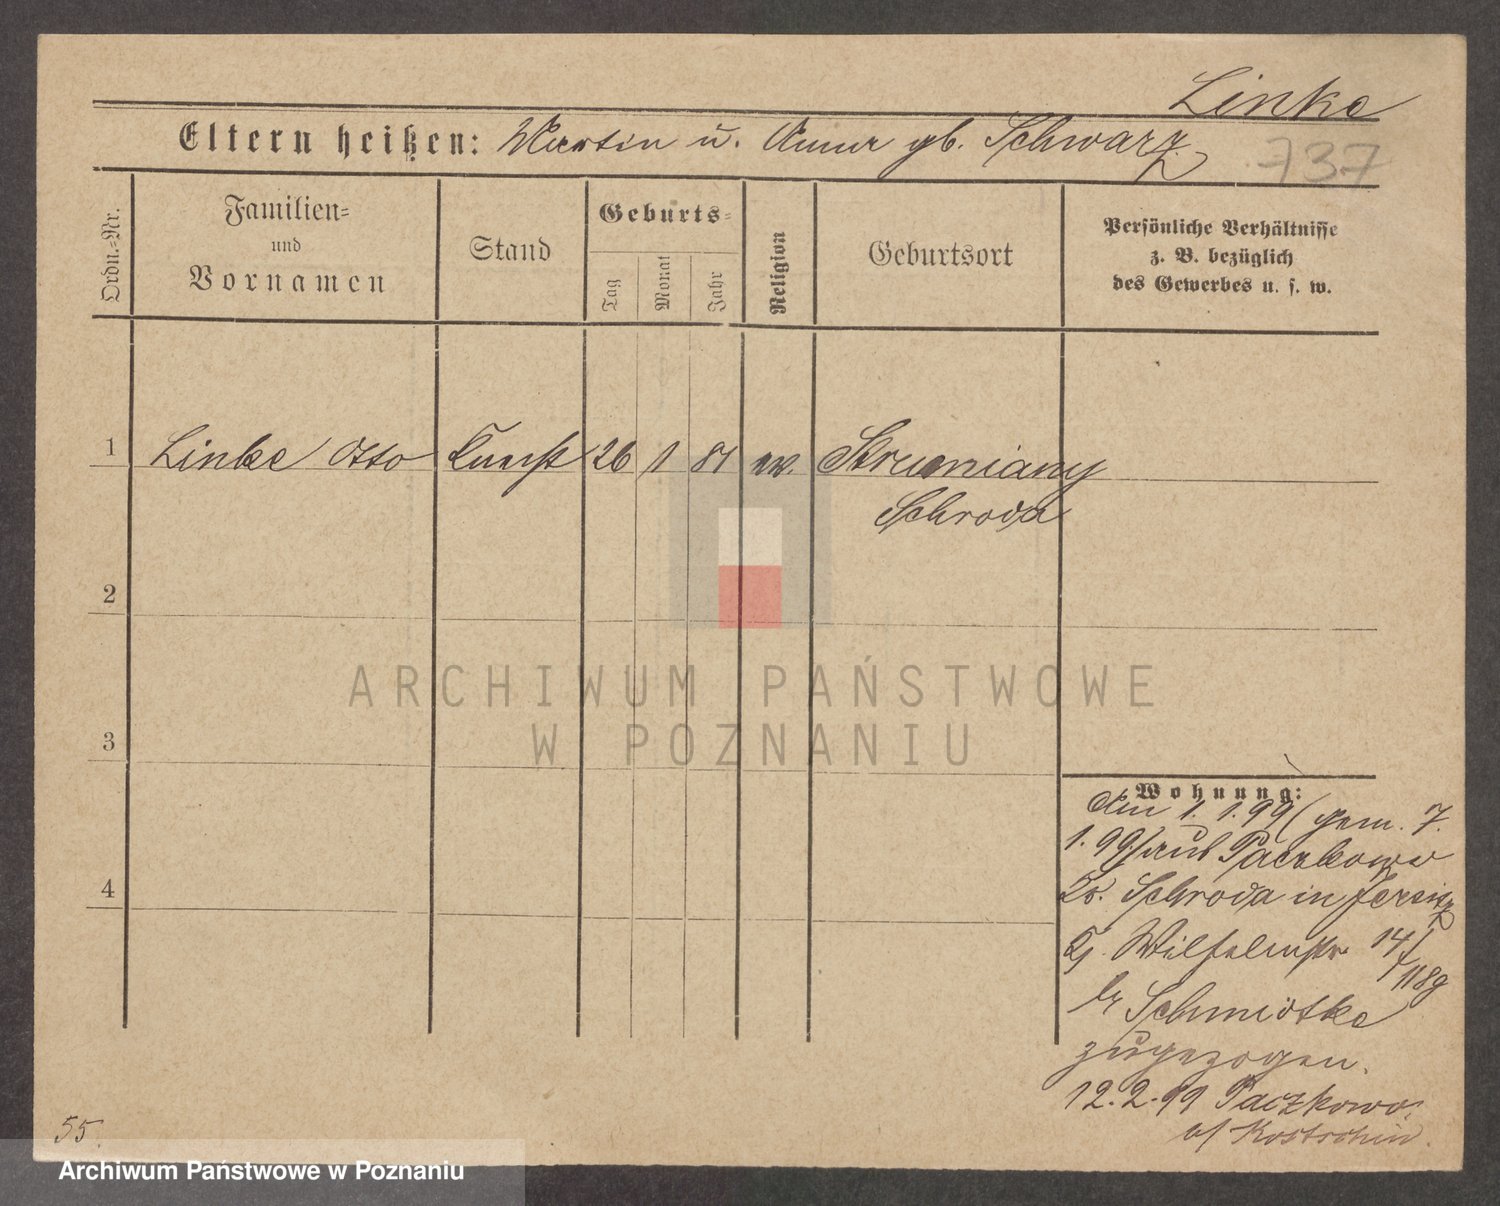 Linke
Eltern heißen: Martin u. Anna gb. Schwarz
737
Ordn.-Nr.
Familien-
und
Vornamen
Stand
Geburts-
Tag
Monat
Jahr
Religion
Geburtsort
Persönliche Verhältnisse
z. B. bezüglich
des Gewerbes u. s. w.
1 Linke Otto Knecht 26 1 81 ev. Strumiany
Schroda
2
ARCHIWUM PAŃSTWOWE
W POZNANIU
3
4
Wohnung:
Am 1. 1. 99 (gem. 7.
1. 99) aus Paczkowo
Schroda in Jersitz
Wilhelmstr 14/
118g
br Schmidtke
zugezogen.
12. 2. 99 Paczkowo
b/ Kostschin.
55.
Archiwum Państwowe w Poznaniu